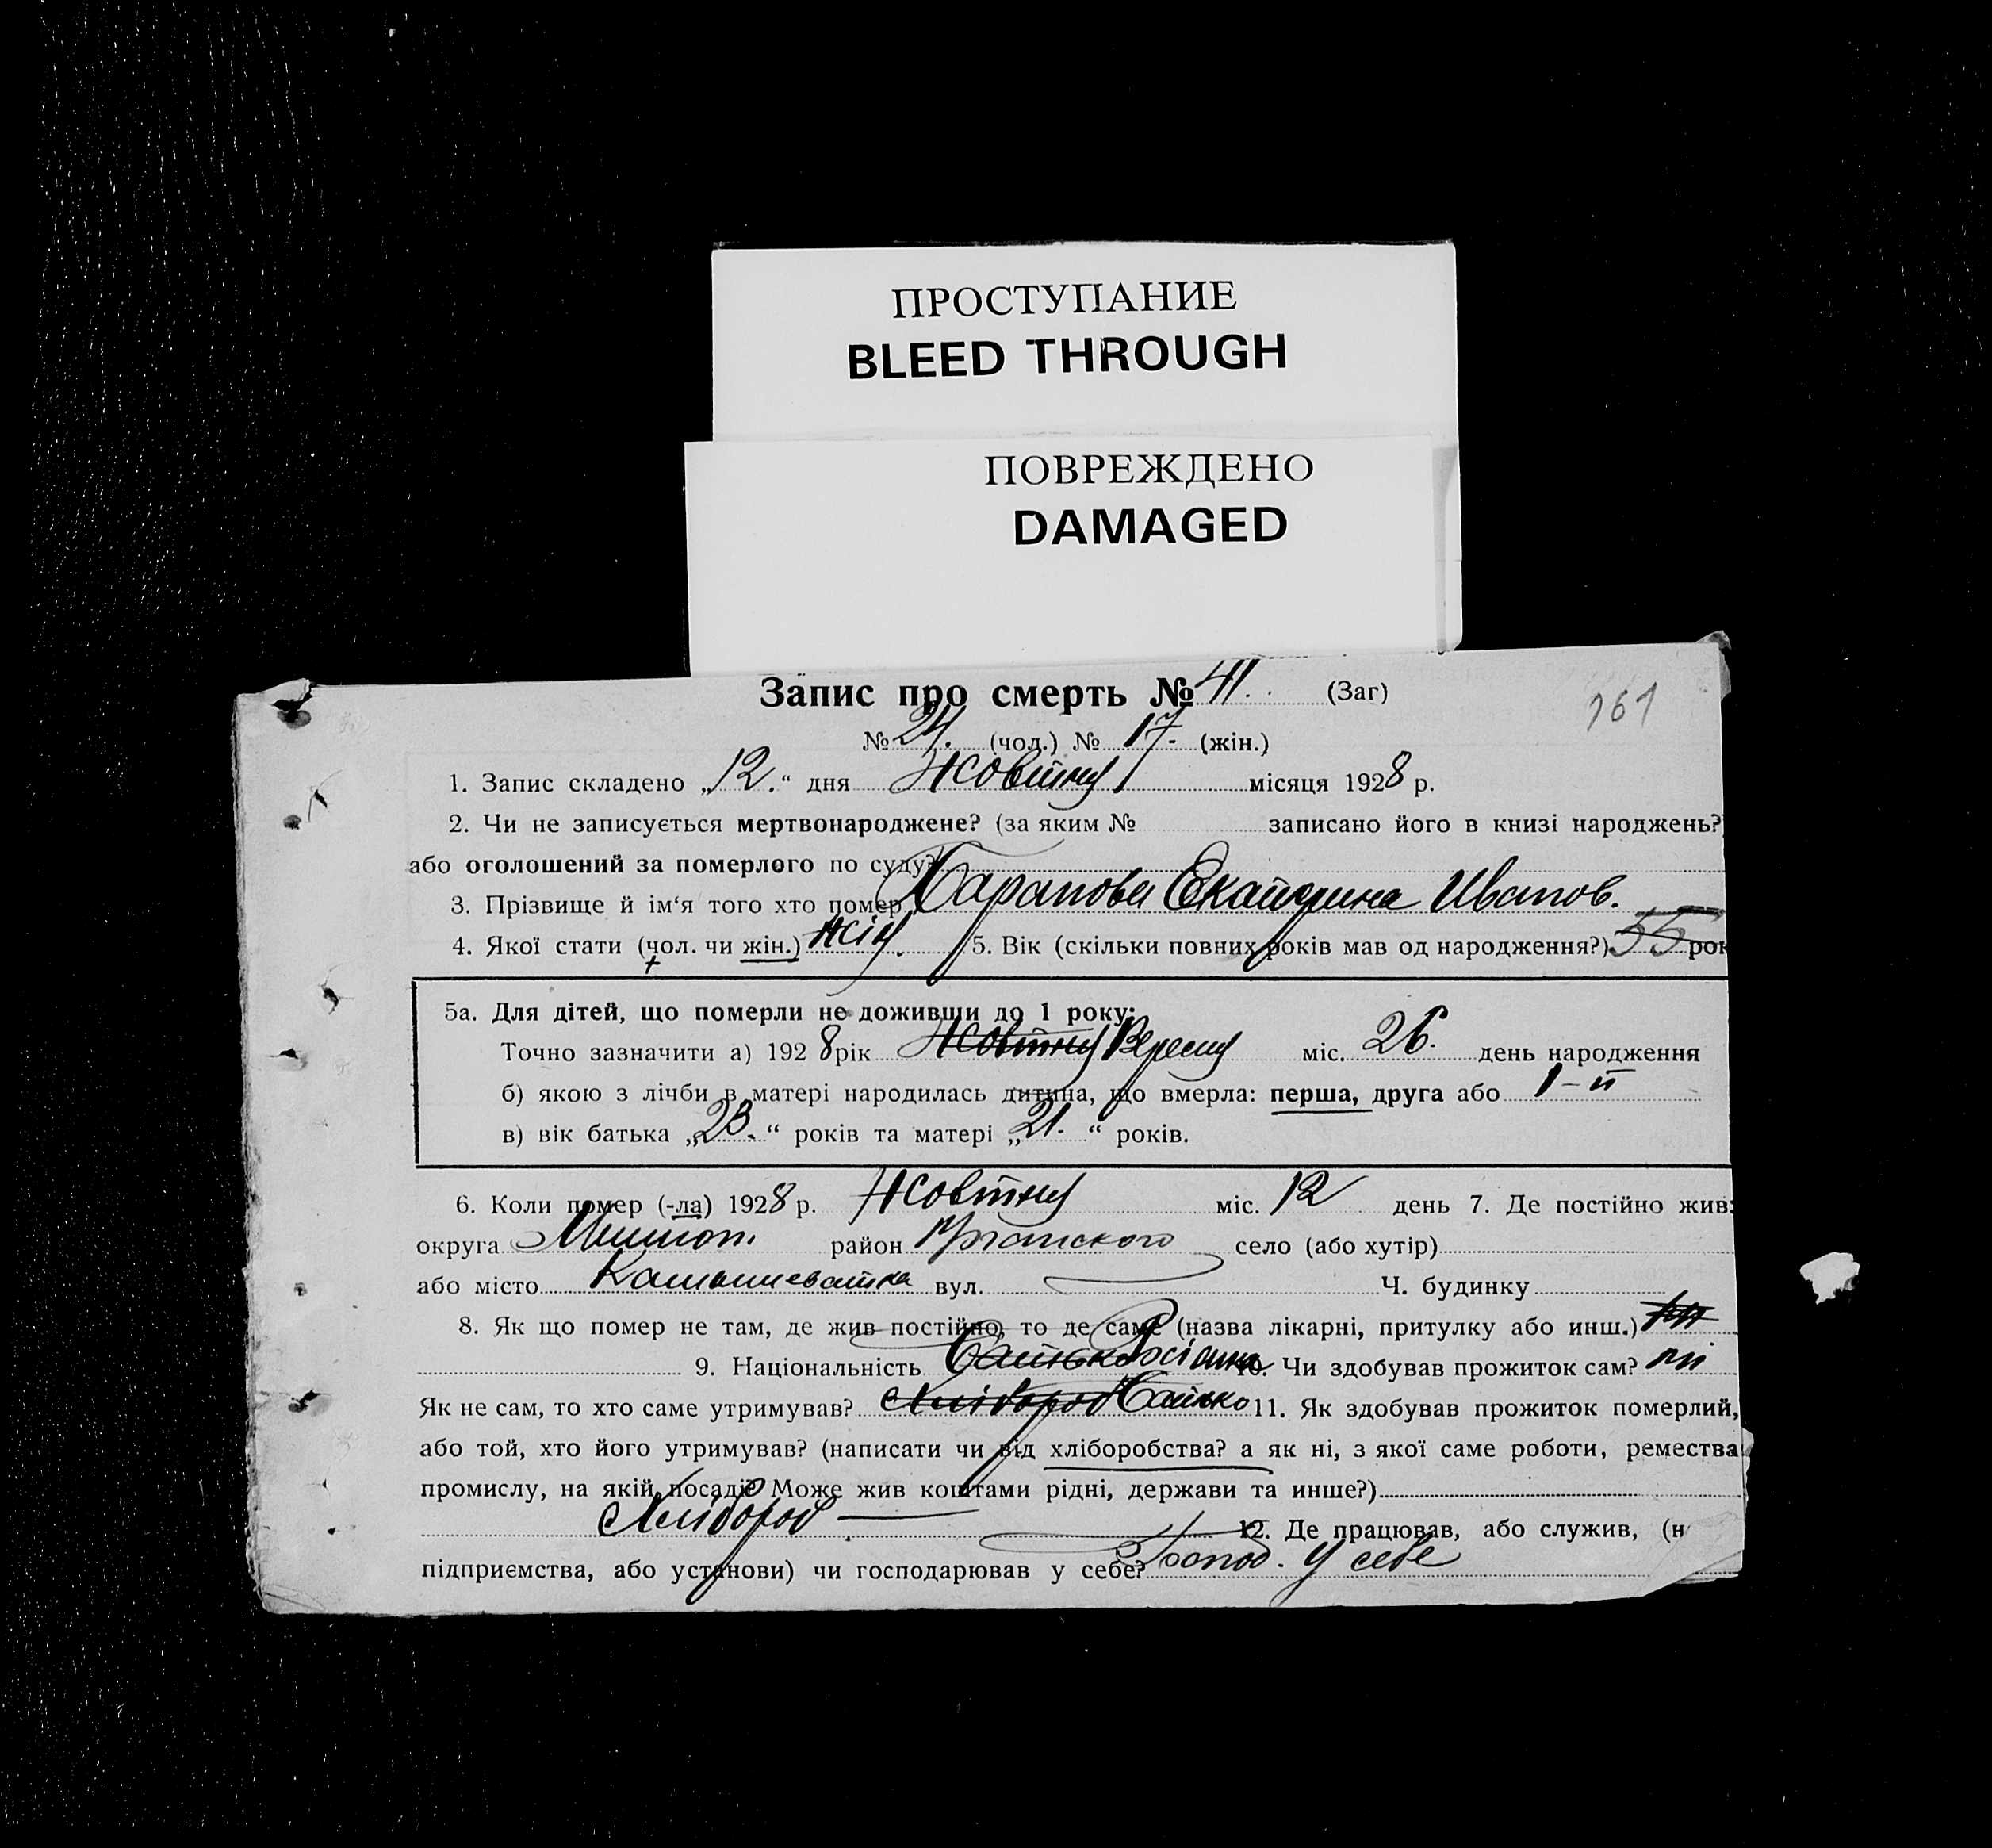 ПРОСТУПАНИЕ
BLEED THROUGH
ПОВРЕЖДЕНО
DAMAGED
Запис про смерть № 41. (Заг)
161
№ 24. (чол.) № 17- (жін.)
1. Запис складено „12.“ дня Жовтня місяця 1928 р.
2. Чи не записується мертвонароджене? (за яким № записано його в книзі народжень?)
або оголошений за померлого по суду?
3. Прізвище й ім‘я того хто помер Екатерина Иванов.
4. Якої стати (чол. чи жін.) жін. 5. Вік (скільки повних років мав од народження?) 55 рок
5а. Для дітей, що померли не доживши до 1 року:
Точно зазначити а) 1928 рік Жовтня Вересня міс. 26. день народження
б) якою з лічби в матері народилась дитина, що вмерла: перша, друга або 1-ї
в) вік батька „23.“ років та матері „21.“ років.
6. Коли помер (-ла) 1928 р. Жовтня міс. 12 день 7. Де постійно жив:
округа район село (або хутір)
або місто Камышеватка вул. Ч. будинку
8. Як що помер не там, де жив постійно, то де саме (назва лікарні, притулку або инш.)
9. Національність 10. Чи здобував прожиток сам? ні
Як не сам, то хто саме утримував? Хлібороб Батько 11. Як здобував прожиток померлий,
або той, хто його утримував? (написати чи від хліборобства? а як ні, з якої саме роботи, ремества
промислу, на якій посаді? Може жив коштами рідні, держави та инше?)
Хлібороб 12. Де працював, або служив, (н
підприємства, або установи) чи господарював у себе? Господ. у себе